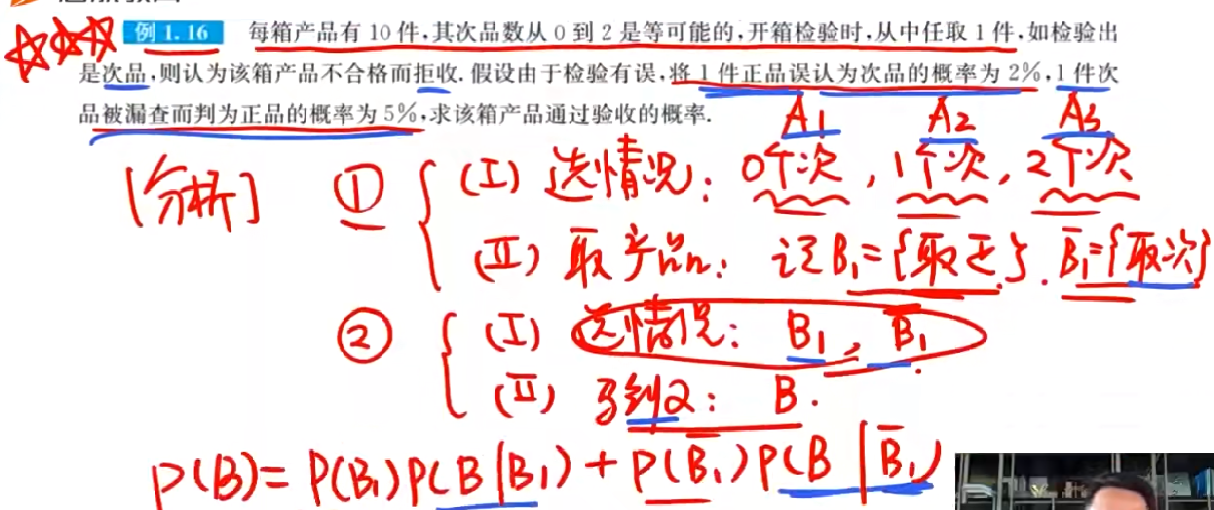 例1.16 每箱产品有10件,其次品数从0到2是等可能的,开箱检验时,从中任取1件,如检验出
是次品,则认为该箱产品不合格而拒收.假设由于检验有误,将1件正品误认为次品的概率为2%,1件次
品被漏查而判为正品的概率为5%,求该箱产品通过验收的概率.
A₁ A₂ A₃
[分析] ① (I) 选情况: 0个次, 1个次, 2个次
(II) 取产品: 记B₁={取正}. B̄₁={取次}
② (I) 选情况: B₁, B̄₁.
(II) : B.
P(B)=P(B₁)P(B|B₁)+P(B̄₁)P(B|B̄₁)